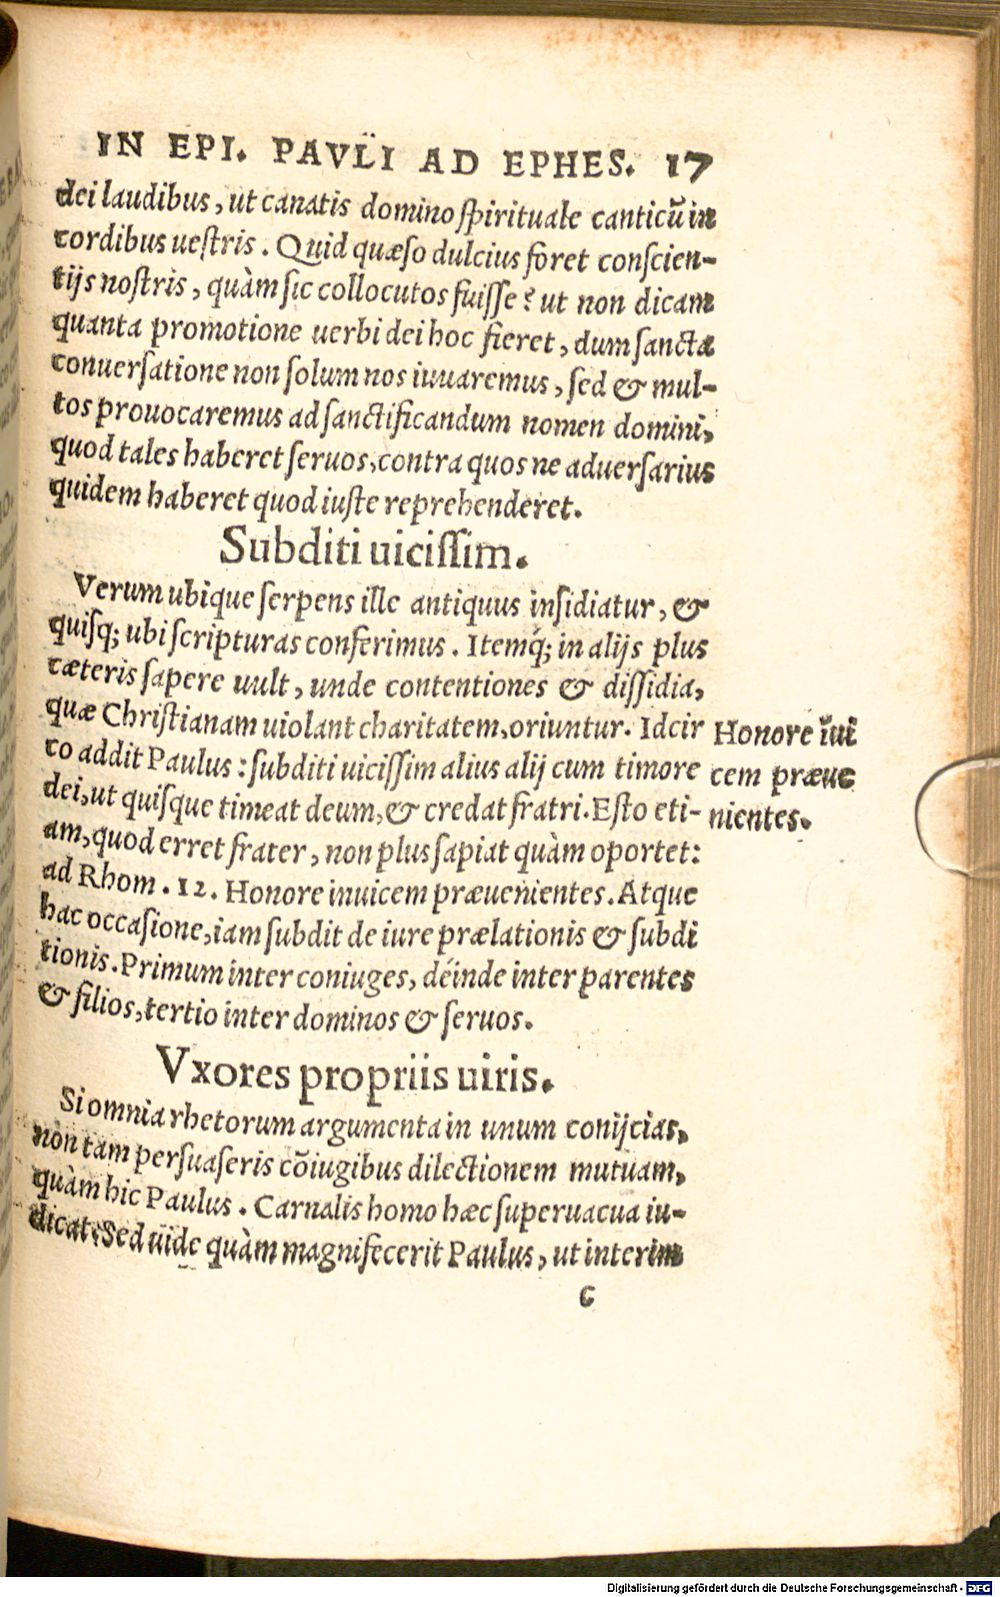 IN EPI. PAVLI AD EPHES. 17
dei laudibus, ut canatis domino spirituale canticū in
cordibus uestris. Quid quæso dulcius foret conscien-
tijs nostris, quàm sic collocutos fuisse? ut non dicam
quanta promotione uerbi dei hoc fieret, dum sancta
conuersatione non solum nos iuuaremus, sed & mul-
tos prouocaremus ad sanctificandum nomen domini,
quod tales haberet seruos, contra quos ne aduersarius
quidem haberet quod iuste reprehenderet.
Subditi uicissim.
Verum ubique serpens ille antiquus insidiatur, &
quisq; ubi scripturas conferimus. Itemq́; in alijs plus
cæteris sapere uult, unde contentiones & dissidia,
quæ Christianam uiolant charitatem, oriuntur. Idcir
co addit Paulus: subditi uicissim alius alij cum timore
dei, ut quisque timeat deum, & credat fratri. Esto eti-
am, quod erret frater, non plus sapiat quàm oportet:
ad Rhom. 12. Honore inuicem præuenientes. Atque
hac occasione, iam subdit de iure prælationis & subdi
tionis. Primum inter coniuges, déinde inter parentes
& filios, tertio inter dominos & seruos.
Honore īui
cem præue
nientes.
Vxores propriis uiris.
Si omnia rhetorum argumenta in unum conijcias,
non tam persuaseris cōiugibus dilectionem mutuam,
quàm hic Paulus. Carnalis homo hæc superuacua iu-
dicat. Sed uide quàm magnifecerit Paulus, ut interim
C
Digitalisierung gefördert durch die Deutsche Forschungsgemeinschaft - DFG